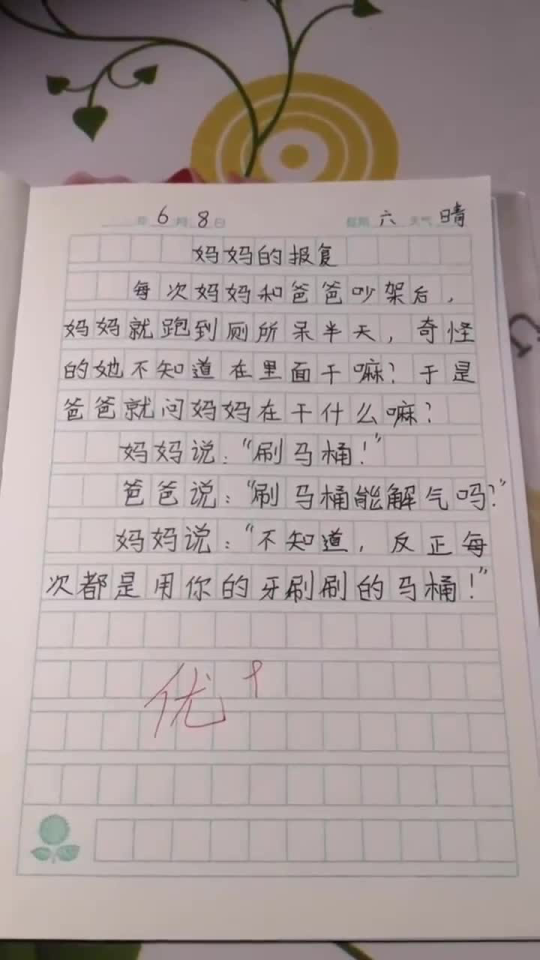 年 6 月 8 日 星期 六 天气 晴
妈妈的报复
每次妈妈和爸爸吵架后,
妈妈就跑到厕所呆半天,奇怪
的她不知道在里面干嘛?于是
爸爸就问妈妈在干什么嘛?
妈妈说:“刷马桶!”
爸爸说:“刷马桶能解气吗?”
妈妈说:“不知道,反正每
次都是用你的牙刷刷的马桶!”
优+